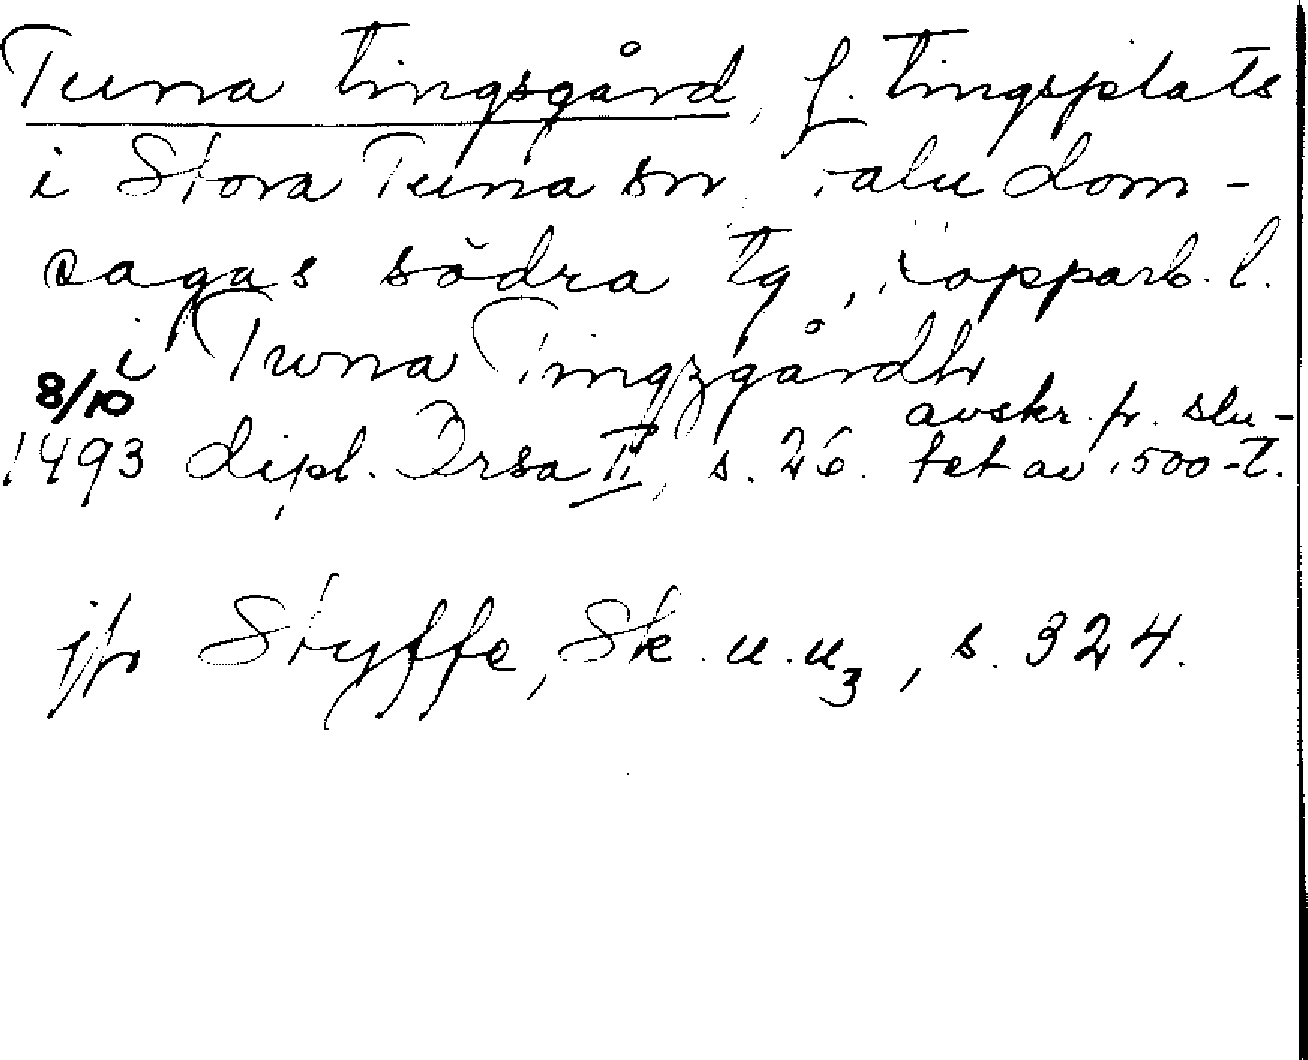 Tuna tingsgård, f. tingsplats
i Stora Tuna sn, Falu dom-
sagas södra tg, Kopparb. l.
i Twna Tingzgårdh
8/10 avskr. fr. slu-
1493 dipl. Orsa II, s. 26. tet av 1500-t.
jfr Styffe, Sk. u. u3, s. 324.